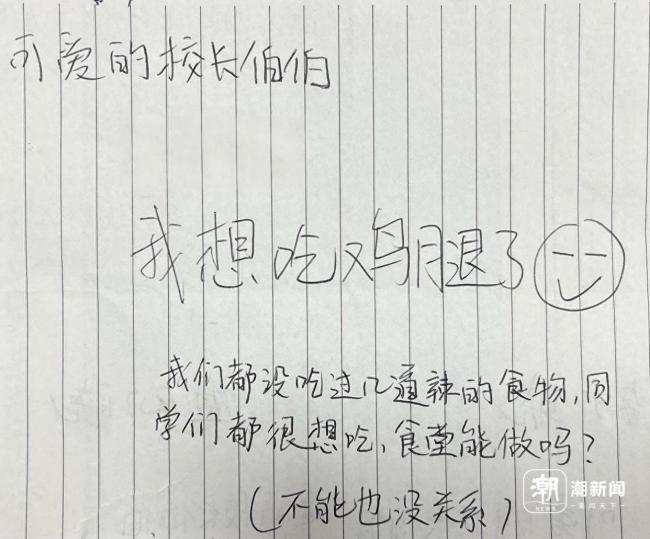 可爱的校长伯伯
我想吃鸡腿了
我们都没吃过几道辣的食物,同
学们都很想吃,食堂能做吗?
(不能也没关系)
潮 潮新闻
NEWS 来闻天下